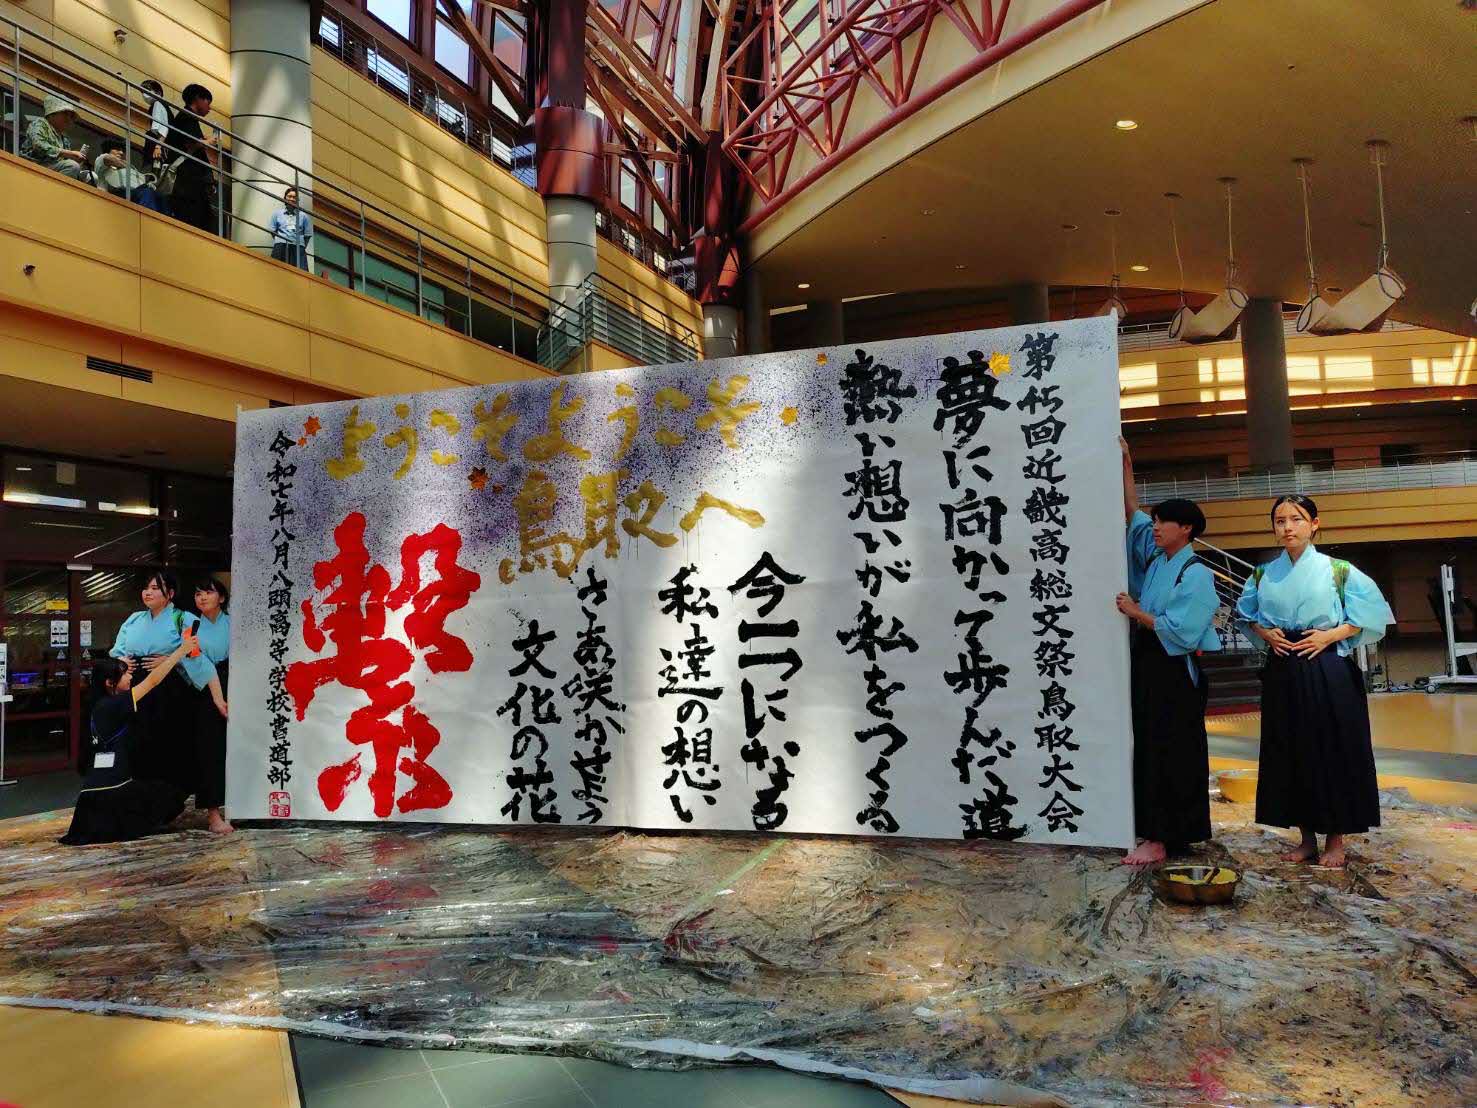 第45回近畿高総文祭鳥取大会
夢に向かって歩んだ道
熱い想いが私をつくる
今一つになる
私達の想い
ようこそようこそ
鳥取へ
さあ咲かせよう
文化の花
繋
令和七年八月八頭高等学校書道部